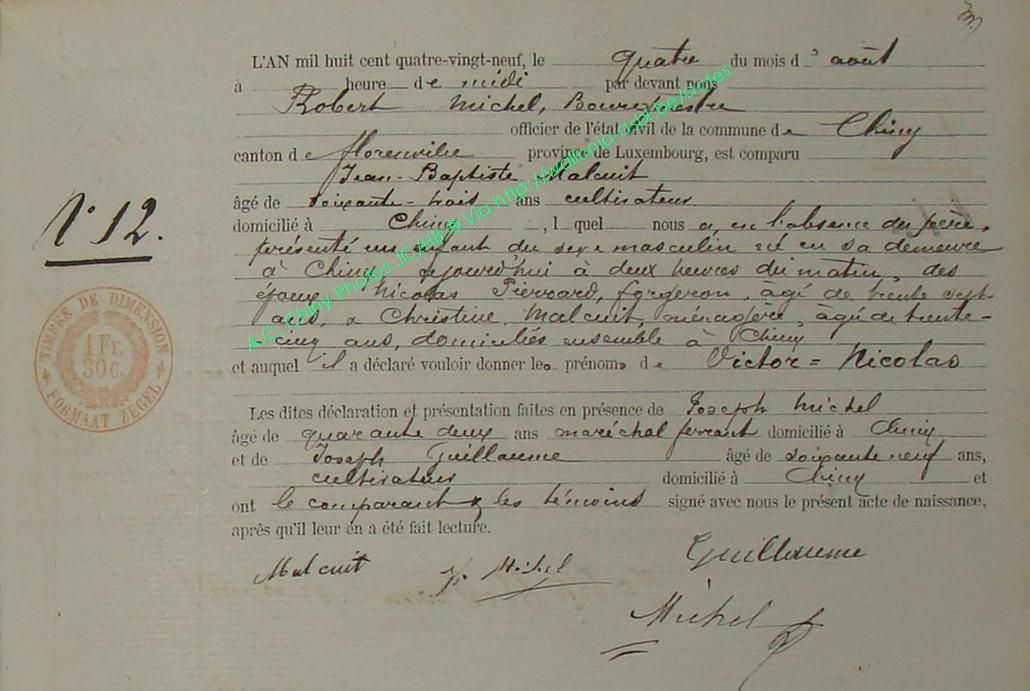 L'AN mil huit cent quatre-vingt-neuf, le quatre du mois d'août
à heure de midi par devant nous
Robert Michel, Bourgmestre
officier de l'état civil de la commune de Chiny
canton de florenville province de Luxembourg, est comparu
Jean-Baptiste Malcuit
âgé de soixante-trois ans cultivateur
domicilié à Chiny, l quel nous a, en l'absence du père,
présenté un enfant du sexe masculin né en sa demeure
à Chiny aujourd'hui à deux heures du matin, des
époux Nicolas Pierrard, forgeron, âgé de trente sept
ans, & Christine Malcuit, ménagère, âgée de trente-
cinq ans, domiciliés ensemble à Chiny
et auquel il a déclaré vouloir donner les prénoms de Victor = Nicolas
Les dites déclaration et présentation faites en présence de Joseph Michel
âgé de quarante deux ans maréchal ferrant domicilié à Chiny
et de Joseph Guillaume âgé de soixante neuf ans,
cultivateur domicilié à Chiny et
ont le comparant & les témoins signé avec nous le présent acte de naissance,
après qu'il leur en a été fait lecture.
Malcuit J. Michel Guillaume
Michel
N° 12.
TIMBRE DE DIMENSION
1 Fr.
30 C.
FORMAAT ZEGEL
A.C. Chiny Photos JC/HB @ via http://wallonia-asbl.be/actes